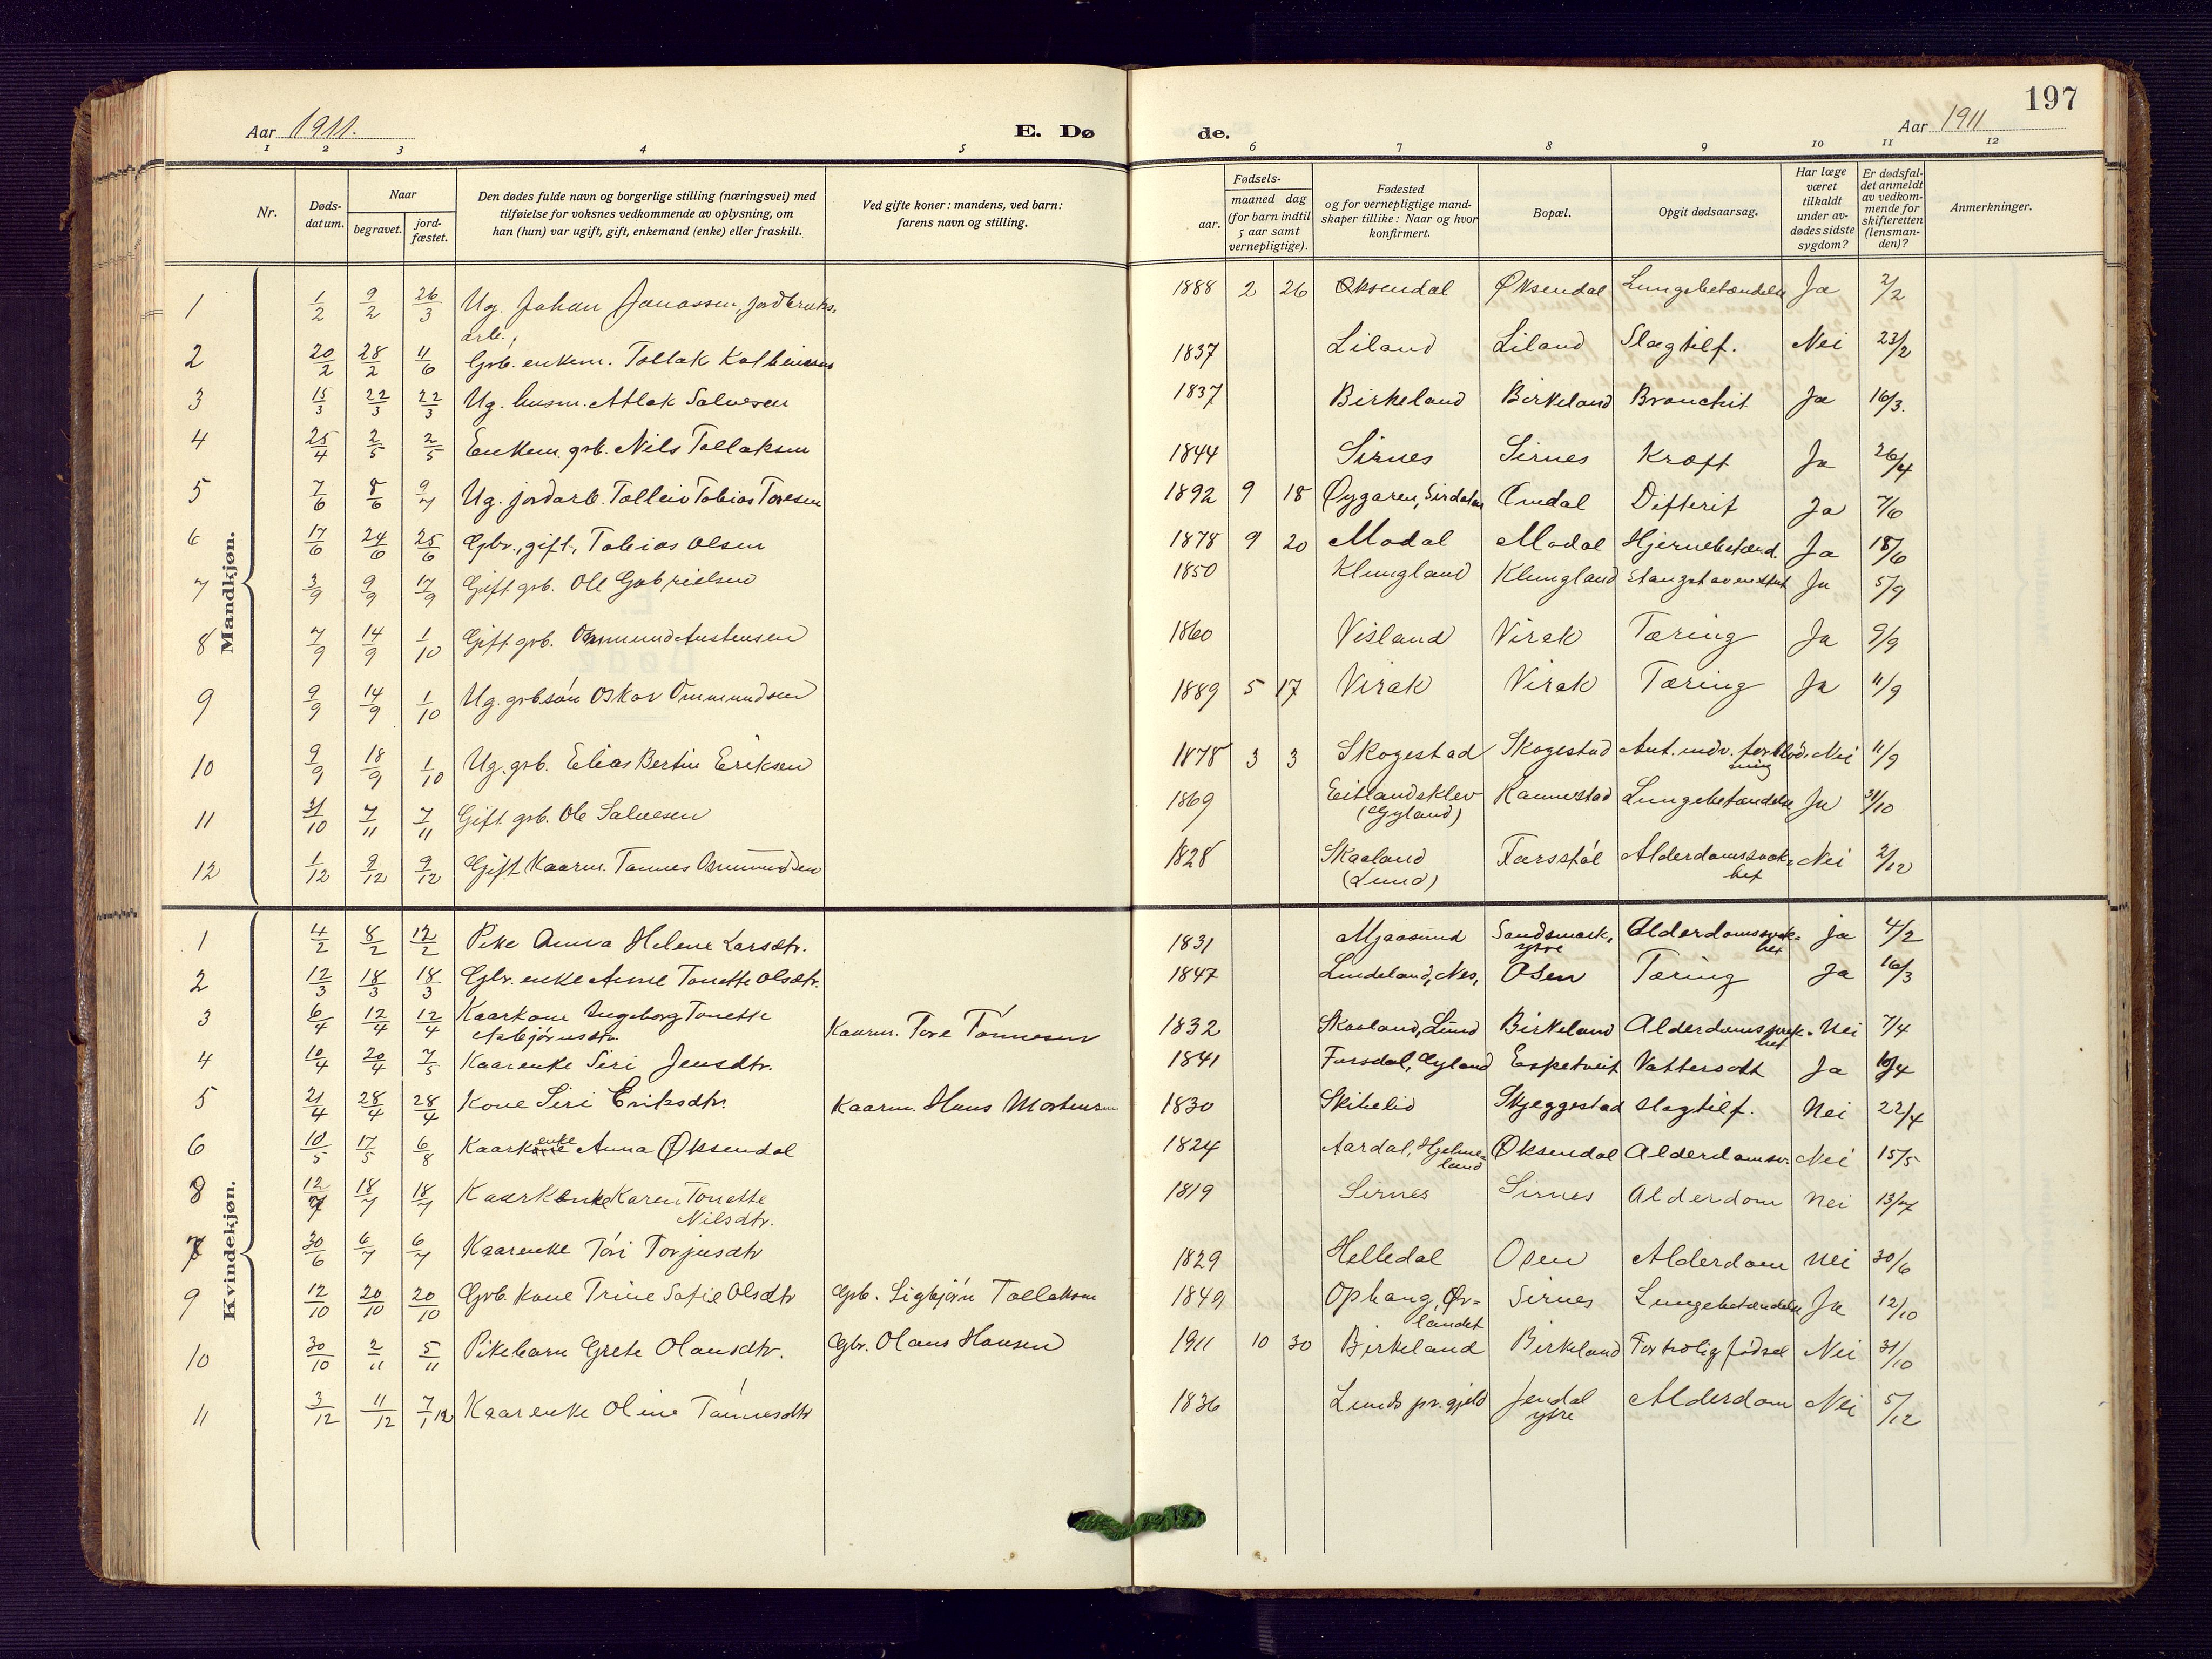 197
Aar 1911. E. Dø de. Aar 1911
1 2 3 4 5 6 7 8 9 10 11 12
Nr. Døds-datum. Naar begravet. jord-fæstet. Den dødes fulde navn og borgerlige stilling (næringsvei) med tilføielse for voksnes vedkommende av oplysning, om han (hun) var ugift, gift, enkemand (enke) eller fraskilt. Ved gifte koner: mandens, ved barn: farens navn og stilling. Fødsels- aar. maaned dag (for barn indtil 5 aar samt vernepligtige). Fødested og for vernepligtige mandskaper tillike: Naar og hvor konfirmert. Bopæl. Opgit dødsaarsag. Har læge været tilkaldt under avdødes sidste sygdom? Er dødsfaldet anmeldt av vedkommende for skifteretten (lensmanden)? Anmerkninger.
Mandkjøn.
1 1/2 9/2 26/3 Ug. Johan Jonassen, jordbruks. arb. 1888 2 26 Øksendal Øksendal Lungebetændelse Ja 2/2
2 20/2 28/2 11/6 Grb. enkem. Tollak Kolbeinsen 1837 Liland Liland Slagtilf. Nei 23/2
3 15/3 22/3 22/3 Ug. husm. Atlak Salvesen 1837 Birkeland Birkeland Bronchit Ja 16/3.
4 25/4 2/5 2/5 Enkem. grb. Nils Tollaksen 1844 Sirnes Sirnes Kræft Ja 26/4
5 7/6 8/6 9/7 Ug. jordarb. Tolleiv Tobias Toresen 1892 9 18 Øygaren, Sirdalen Omdal Difterit Ja 7/6
6 17/6 24/6 25/6 Gbr., gift, Tobias Olsen 1878 9 20 Modal Modal Hjernebetænd. Ja 18/6
7 3/9 9/9 17/9 Gift grb. Ole Gabrielsen 1850 Klungland Klungland Stanget av en stut Ja 5/9
8 7/9 14/9 1/10 Gift grb. Ommund Austensen 1860 Visland Virak Tæring Ja 9/9
9 9/9 14/9 1/10 Ug. grbsøn Oskar Ommundsen 1889 5 17 Virak Virak Tæring Ja 11/9
10 9/9 18/9 1/10 Ug. grb. Elias Bertin Eriksen 1878 3 3 Skogestad Skogestad Ant. indv. forblødning Nei 11/9
11 31/10 7/11 7/11 Gift grb. Ole Salvesen 1869 Eitlandsklev (Gyland) Kannestad Lungebetændelse Ja 31/10
12 1/12 9/12 9/12 Gift Kaarm. Tønnes Ommundsen 1828 Skaaland (Lund) Førsstøl Alderdomssvakhet Nei 2/12
Kvindekjøn.
1 4/2 8/2 12/2 Pike Anna Helene Larsdtr. 1831 Mjaasund Sandsmark, ytre Alderdomssvakhet Ja 4/2
2 12/3 18/3 18/3 Gbr. enke Anne Tonette Olsdtr. 1847 Lindeland, Nes, Osen Tæring Ja 16/3
3 6/4 12/4 12/4 Kaarkone Ingeborg Tonette Asbjørnsdtr. Kaarm. Tore Tønnesen 1832 Skaaland, Lund Birkeland Alderdomssvakhet Nei 7/4
4 10/4 20/4 7/5 Kaarenke Siri Jensdtr. 1841 Fursdal, Gyland Espetveit Vattersott Ja 10/4
5 21/4 28/4 28/4 Kone Siri Eriksdtr. Kaarm. Hans Mortensen 1830 Skibelid Skjeggestad Slagtilf. Nei 22/4
6 10/5 17/5 6/8 Kaarkone enke Anna Øksendal 1824 Aardal, Hjelmeland Øksendal Alderdomsv. Nei 15/5
8 12/7 18/7 18/7 Kaarkenke Karen Tonette Nilsdtr. 1819 Sirnes Sirnes Alderdom Nei 13/7
7 30/6 6/7 6/7 Kaarenke Tøri Torjusdtr 1829 Helledal Osen Alderdom Nei 30/6
9 12/10 20/10 20/10 Grb. kone Trine Sofie Olsdtr Grb. Sigbjørn Tollaksen 1849 Ophang, Ørlandet Sirnes Lungebetændelse Ja 12/10
10 30/10 2/11 5/11 Pikebarn Grete Olausdtr. Gbr. Olaus Hansen 1911 10 30 Birkeland Birkeland For trolig fødsel Nei 31/10
11 3/12 11/12 7/1 12 Kaarenke Oline Tønnesdtr 1836 Lunds pr.gjeld Jendal ytre Alderdom Nei 5/12